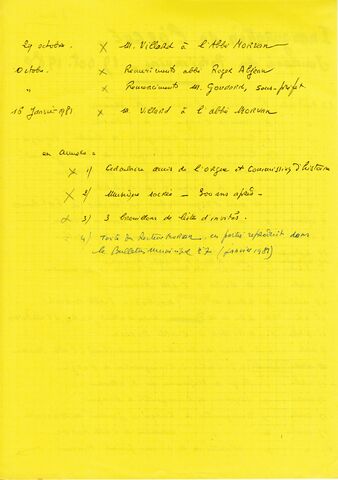 29 octobre. x M. Villard à l'Abbé Morvan
Octobre. x Remerciements abbé Roger Abjean
" x Remerciements M. Goudard, sous-préfet
16 Janvier 1981 x M. Villard à l'abbé Morvan
en Annexe =
x 1) amis de l'orgue et Commission d'histoire
x 2) Musique sacrée - 300 ans après -
x 3) 3 brouillons de liste d'invités.
- 4) Texte du Recteur Morvan, en partie reproduit dans
le Bulletin Municipal n° 7 (janvier 1981)